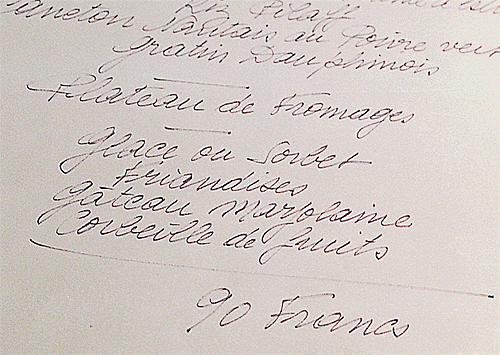 Riz Pilaff
Caneton Nantais au Poivre vert
Gratin Dauphinois
Plateau de Fromages
Glace ou Sorbet
Friandises
Gâteau Marjolaine
Corbeille de fruits
90 Francs